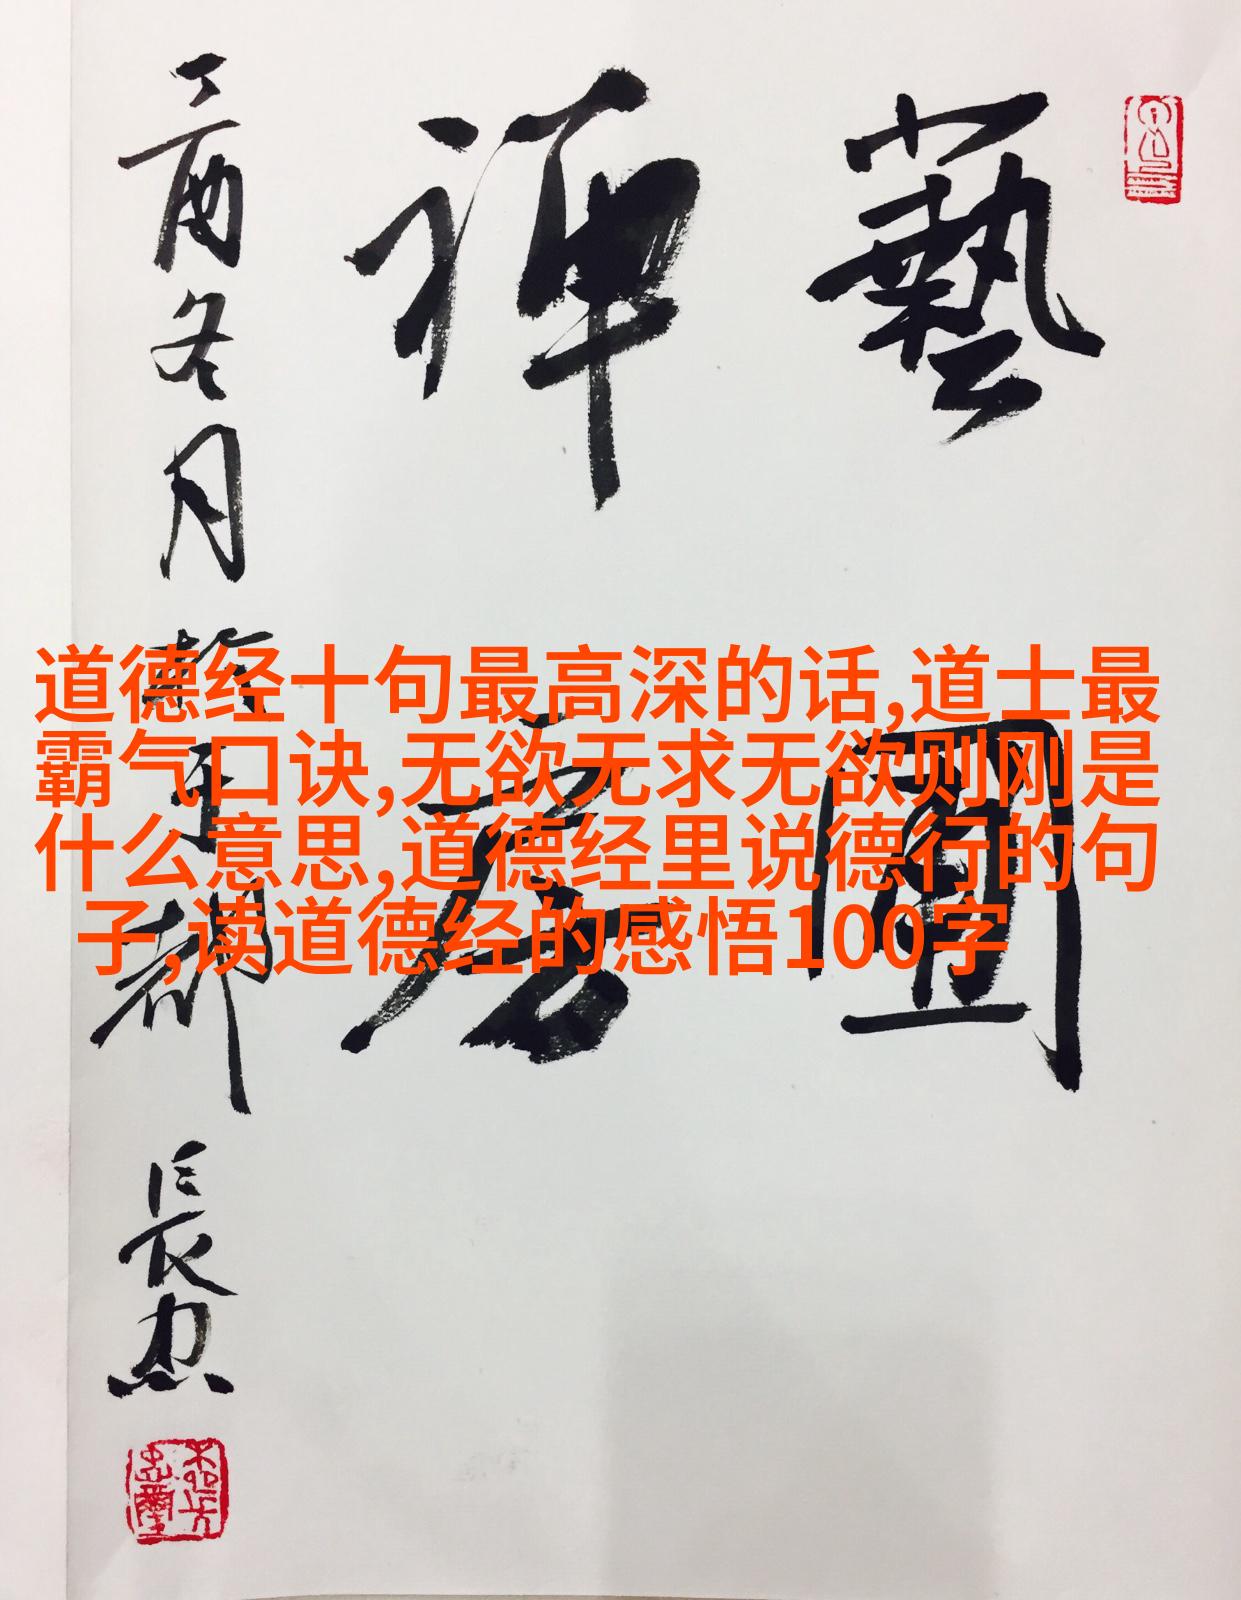 藝圃
禪房
丁酉冬月
於京都
長忠
道德经十句最高深的话,道士最
霸气口诀,无欲无求无欲则刚是
什么意思,道德经里说德行的句
子,读道德经的感悟100字